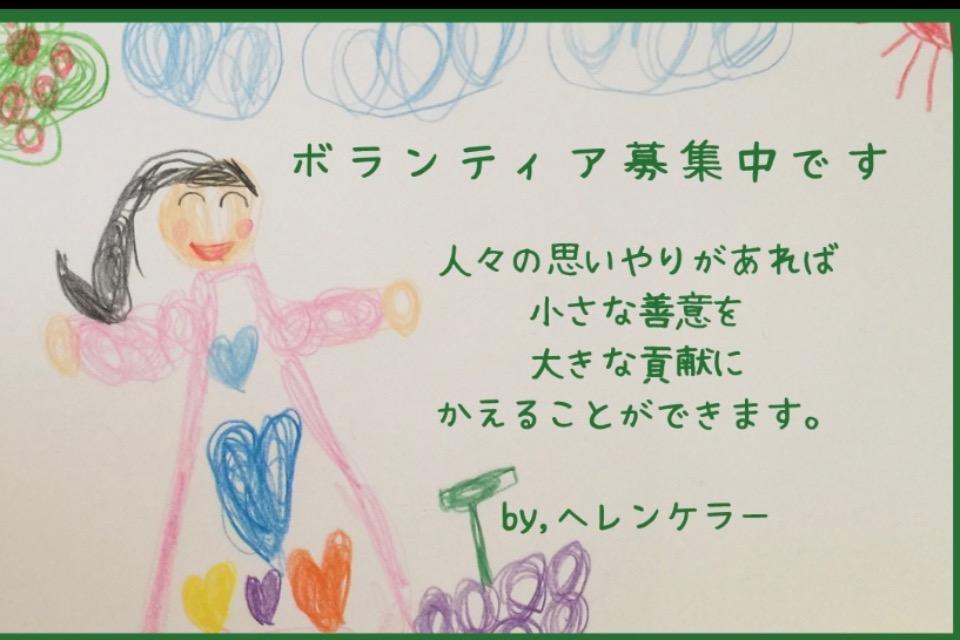 ボランティア募集中です
人々の思いやりがあれば
小さな善意を
大きな貢献に
かえることができます。
by,ヘレンケラー